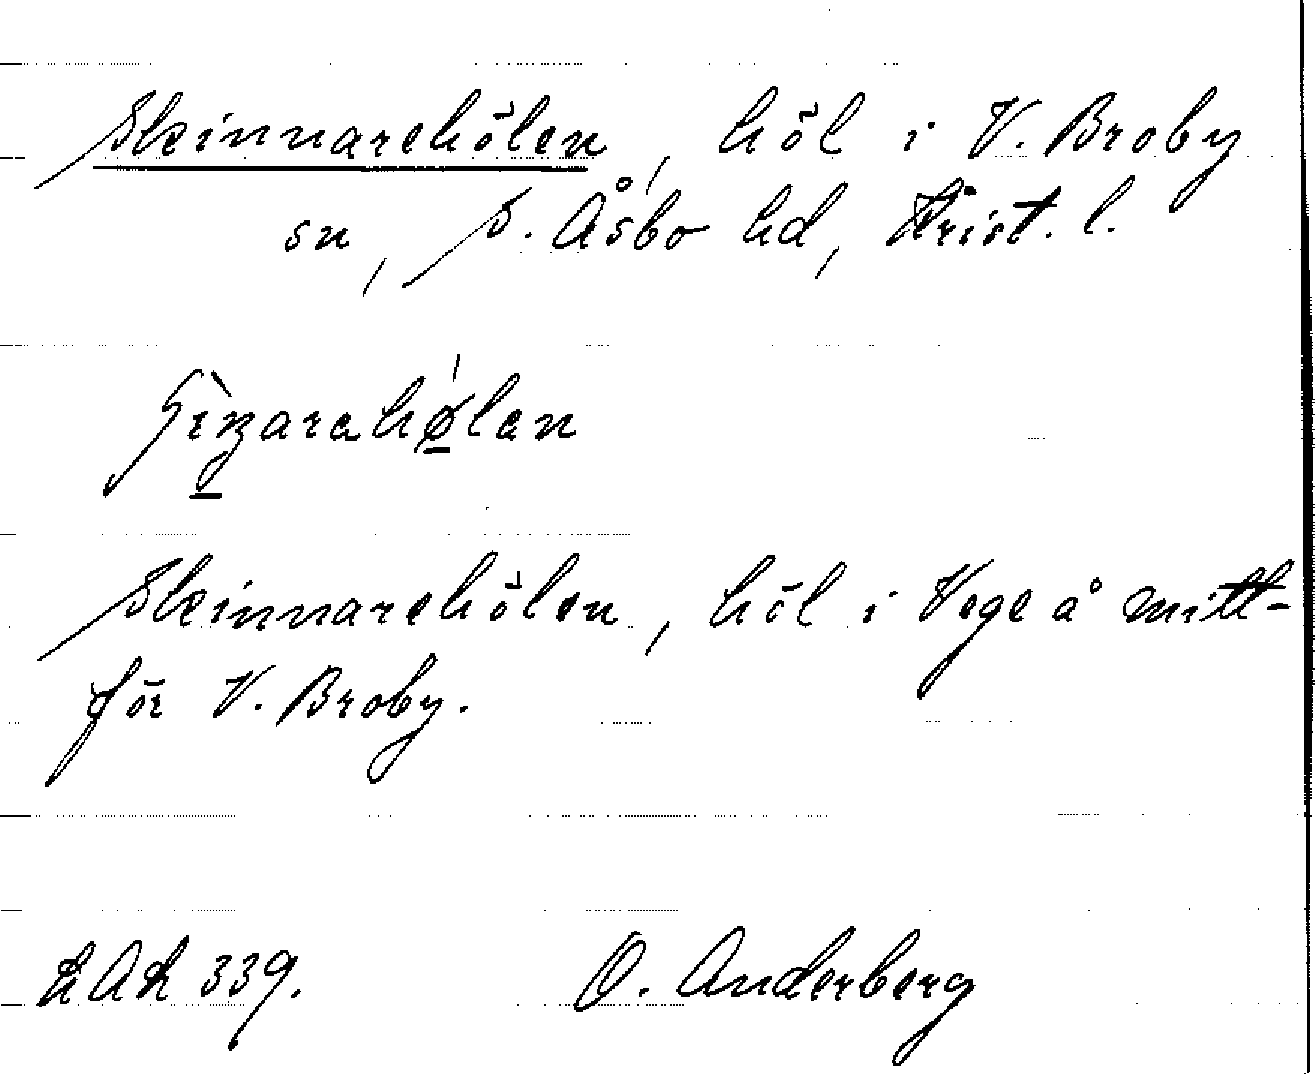 Skinnarehölen, höl i V. Broby
sn, S. Åsbo hd, Krist. l.
Skinnarehölen, höl i Vege å mitt-
för V. Broby.
LAL 339. O. Anderberg